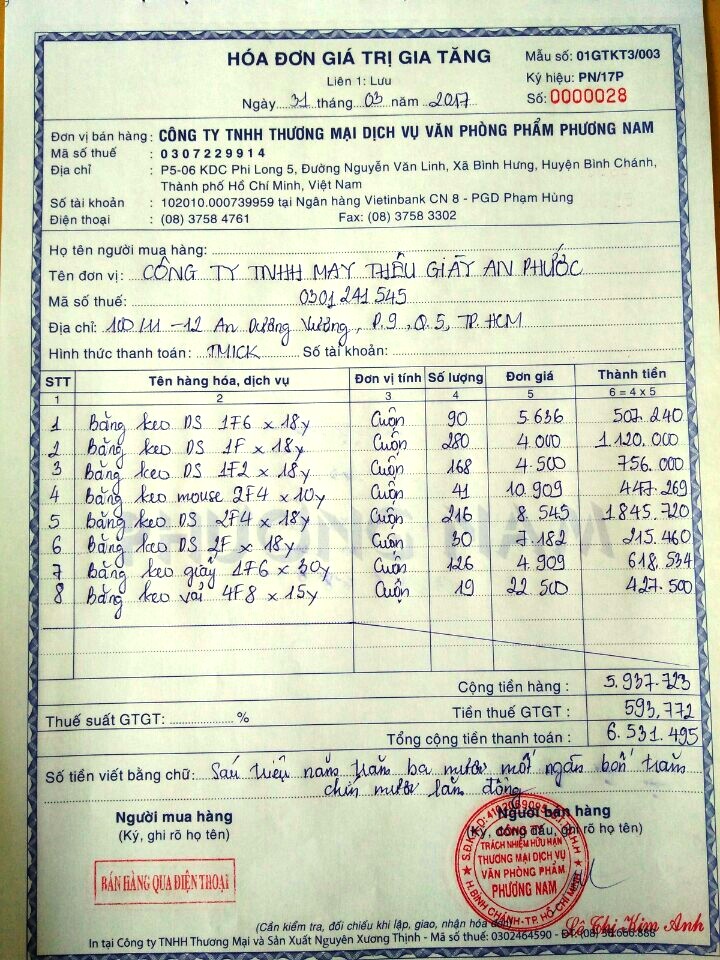 HÓA ĐƠN GIÁ TRỊ GIA TĂNG
Mẫu số: 01GTKT3/003
Liên 1: Lưu
Ký hiệu: PN/17P
Ngày 31 tháng 03 năm 2017
Số: 0000028
Đơn vị bán hàng : CÔNG TY TNHH THƯƠNG MẠI DỊCH VỤ VĂN PHÒNG PHẨM PHƯƠNG NAM
Mã số thuế : 0307229914
Địa chỉ : P5-06 KDC Phi Long 5, Đường Nguyễn Văn Linh, Xã Bình Hưng, Huyện Bình Chánh,
Thành phố Hồ Chí Minh, Việt Nam
Số tài khoản : 102010.000739959 tại Ngân hàng Vietinbank CN 8 - PGD Phạm Hùng
Điện thoại : (08) 3758 4761 Fax: (08) 3758 3302
Họ tên người mua hàng:
Tên đơn vị: CÔNG TY TNHH MAY THÊU GIÀY AN PHƯỚC
Mã số thuế: 0301241545
Địa chỉ: 100/11-12 An Dương Vương, P.9, Q.5, TP.HCM
Hình thức thanh toán: TM/CK Số tài khoản:
STT Tên hàng hóa, dịch vụ Đơn vị tính Số lượng Đơn giá Thành tiền
1 2 3 4 5 6 = 4 x 5
1 Băng keo DS 1F6 x 18y Cuộn 90 5.636 507.240
2 Băng keo DS 1F x 18y Cuộn 280 4.000 1.120.000
3 Băng keo DS 1F2 x 18y Cuộn 168 4.500 756.000
4 Băng keo mouse 2F4 x 10y Cuộn 41 10.909 447.269
5 Băng keo DS 2F4 x 18y Cuộn 216 8.545 1.845.720
6 Băng keo DS 2F x 18y Cuộn 30 7.182 215.460
7 Băng keo giấy 1F6 x 30y Cuộn 126 4.909 618.534
8 Băng keo vải 4F8 x 15y Cuộn 19 22.500 427.500
Cộng tiền hàng : 5.937.723
Thuế suất GTGT: % Tiền thuế GTGT : 593,772
Tổng cộng tiền thanh toán : 6.531.495
Số tiền viết bằng chữ: Sáu triệu năm trăm ba mươi mốt ngàn bốn trăm
chín mươi lăm đồng
Người mua hàng
Người bán hàng
(Ký, ghi rõ họ tên)
(Ký, đóng dấu, ghi rõ họ tên)
BÁN HÀNG QUA ĐIỆN THOẠI
CÔNG TY
TRÁCH NHIỆM HỮU HẠN
THƯƠNG MẠI DỊCH VỤ
VĂN PHÒNG PHẨM
PHƯƠNG NAM
H.BÌNH CHÁNH-TP.HỒ CHÍ MINH
Lê Thị Kim Anh
(Cần kiểm tra, đối chiếu khi lập, giao, nhận hóa đơn)
In tại Công ty TNHH Thương Mại và Sản Xuất Nguyên Xương Thịnh - Mã số thuế: 0302464590 - ĐT: (08)